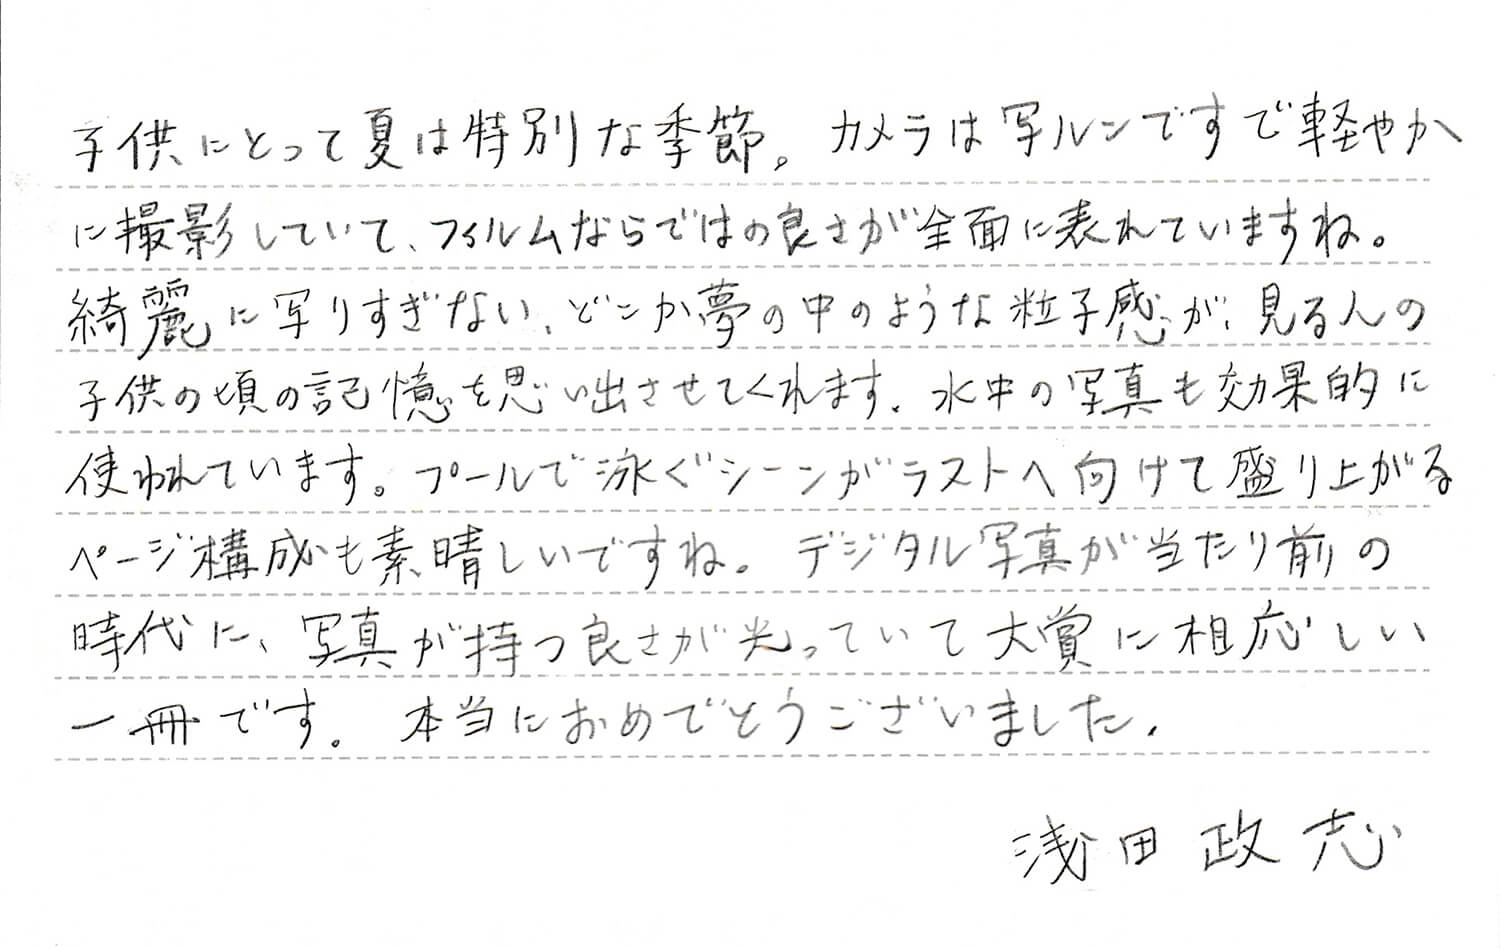 子供にとって夏は特別な季節。カメラは写ルンですで軽やか
に撮影していて、フィルムならではの良さが全面に表れていますね。
綺麗に写りすぎない、どこか夢の中のような粒子感が、見る人の
子供の頃の記憶を思い出させてくれます。水中の写真も効果的に
使われています。プールで泳ぐシーンがラストへ向けて盛り上がる
ページ構成も素晴しいですね。デジタル写真が当たり前の
時代に、写真が持つ良さが光っていて大賞に相応しい
一冊です。本当におめでとうございました。
浅田政志